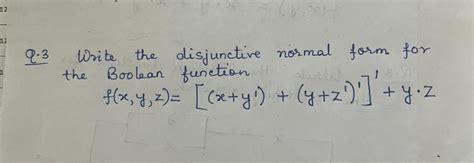 Q.3 Write the disjunctive normal form for
the Boolean function
f(x,y,z)= [(x+y') + (y+z')']' + y·z